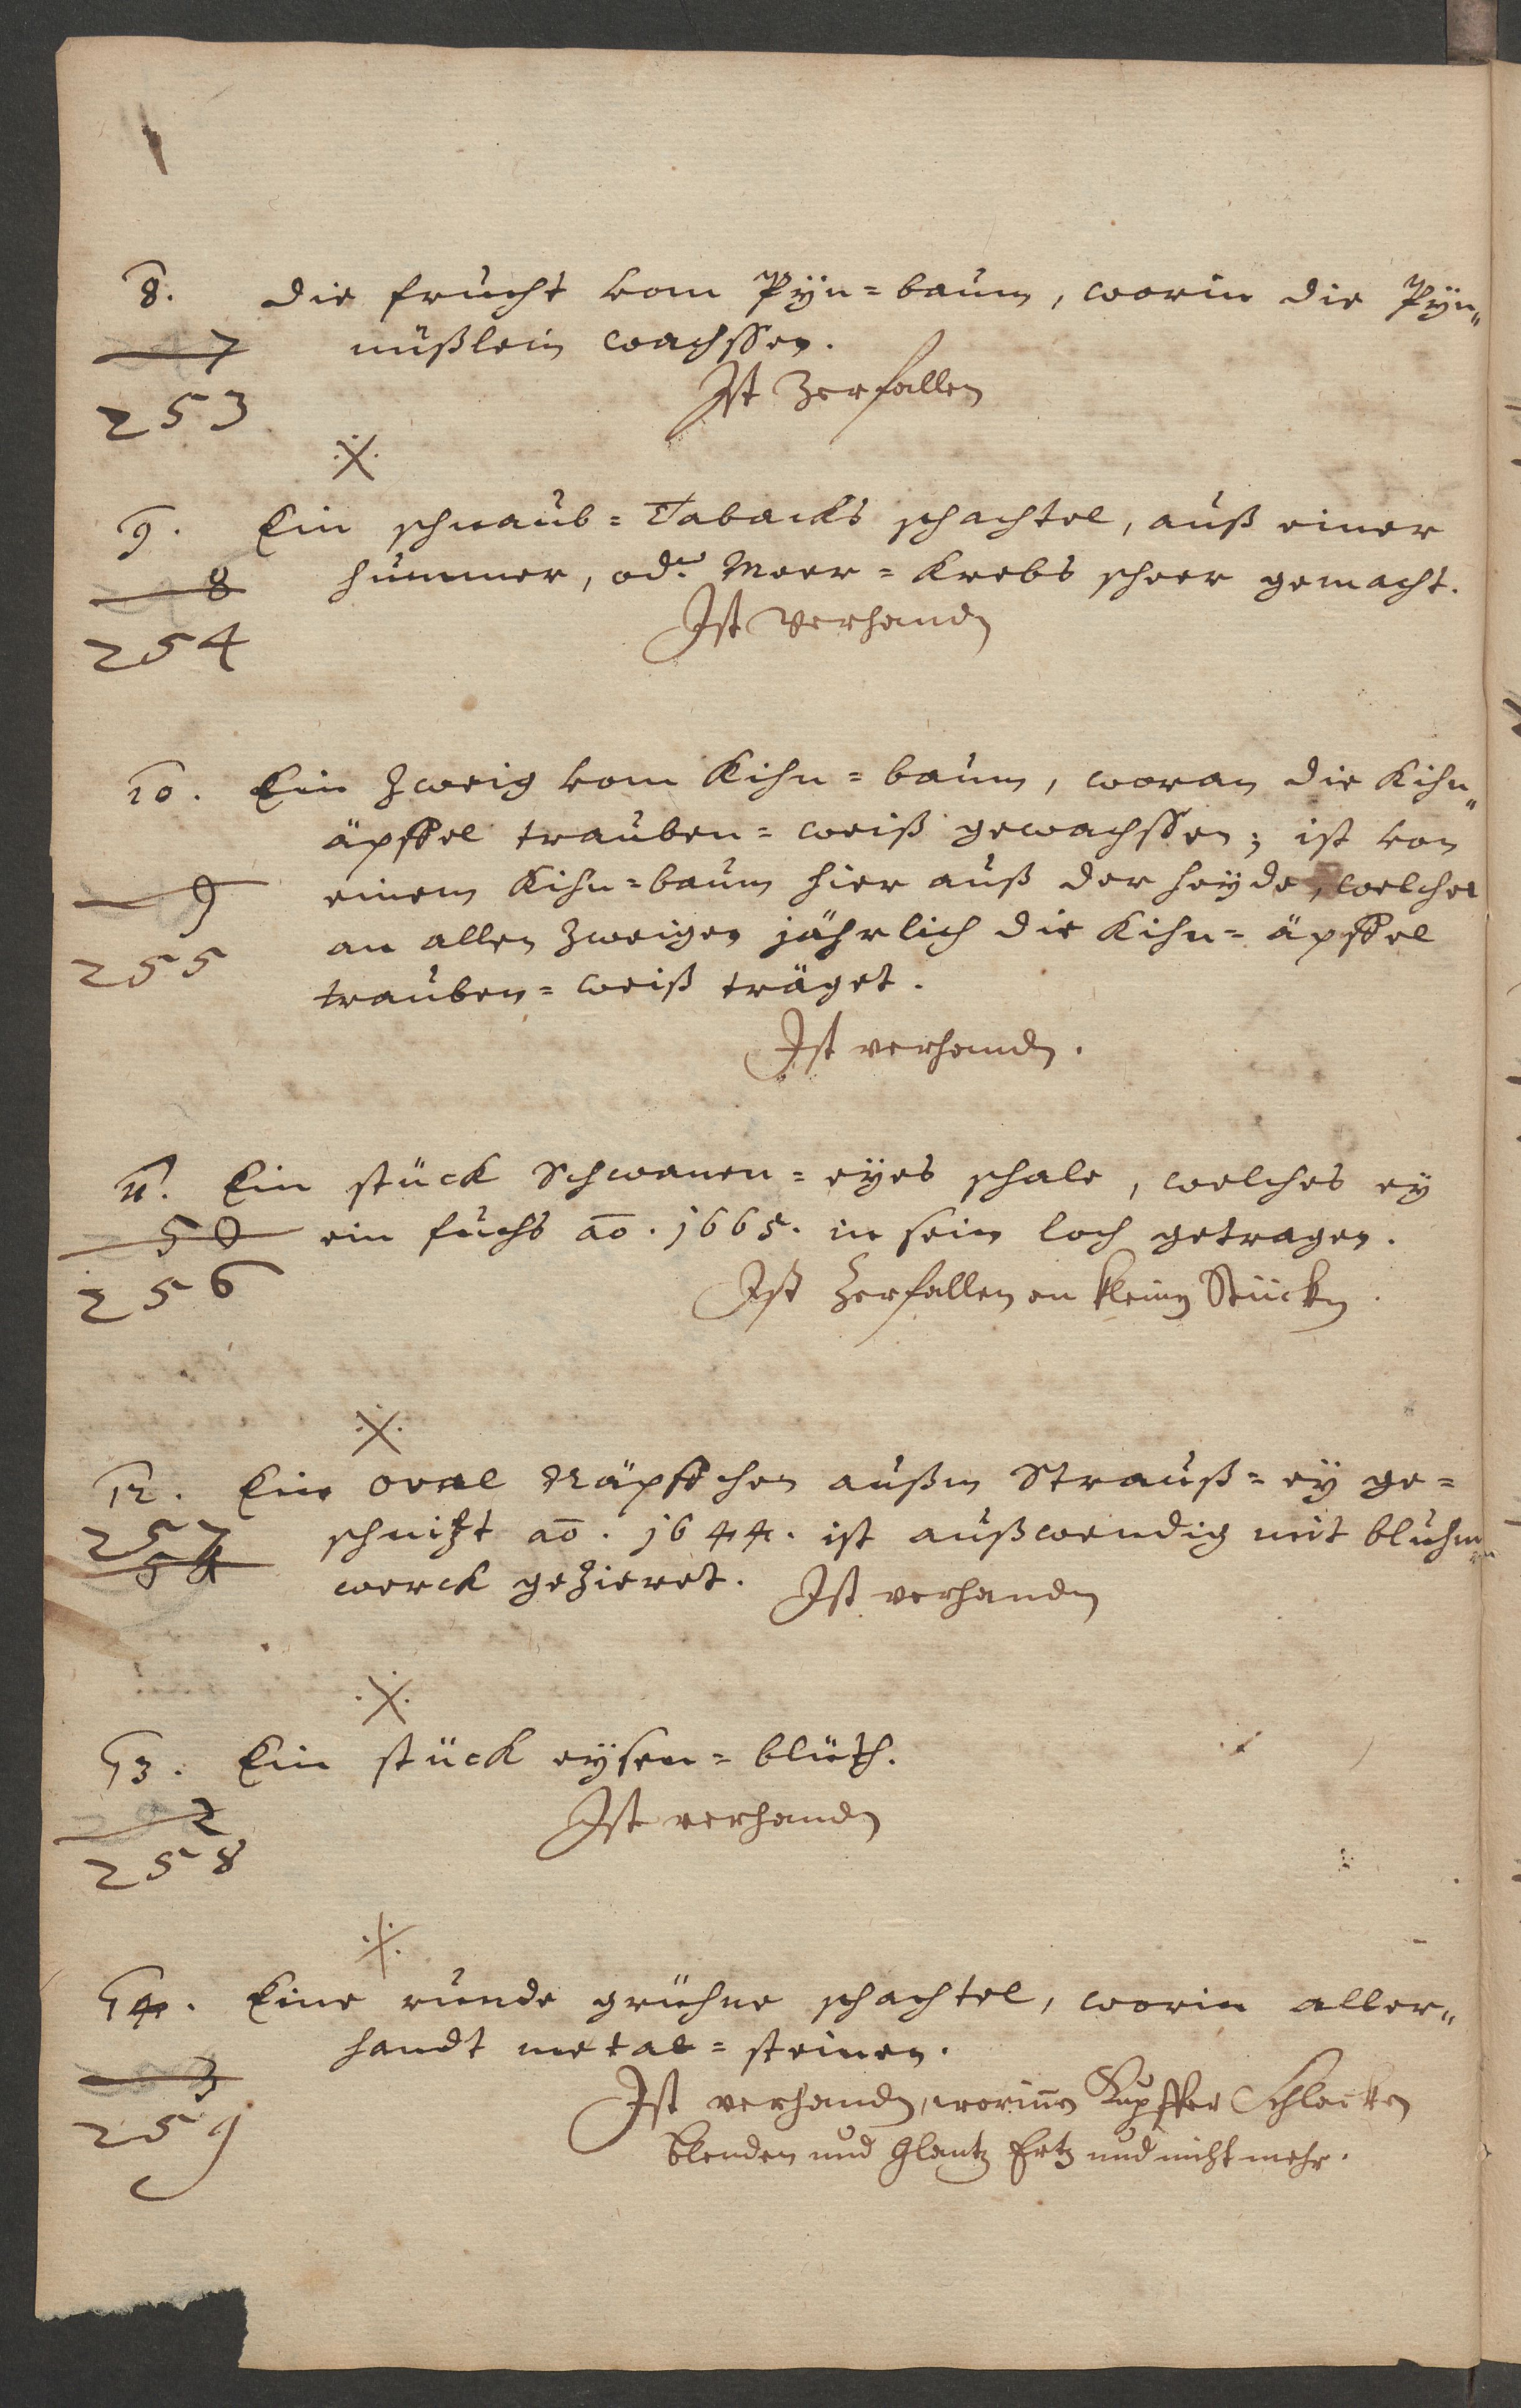 8. die frucht vom Pÿn=baum, worin die Pÿn„
7 nüßlein wachssen.
253 Ist Zerfallen
9. Ein schnaub=Tabacks schachtel, auß einer
8 hummer, odr Meer=Krebs scheer gemacht.
254 Ist verhanden
10. Ein Zweig vom Kihn=baum, woran die Kihn„
äpffel trauben=weiß gewachssen; ist von
9 einem Kihn=baum hier auß der heyde, welcher
255 an allen Zweigen jährlich die Kihn=äpffel
trauben=weiß träget.
Ist verhanden.
11. Ein stück Schwanen=eÿes schale, welches eÿ
50 ein fuchs ao. 1665. in sein loch getragen.
256 Ist Zerfallen en kleine Stücken.
12. Ein oval Näpffchen außm Strauß=eÿ ge=
257 schnitzt ao. 1644. ist außwendig mit bluhm„
werck gezieret. Ist verhanden
13. Ein stück eÿsen=blüth.
2 Ist verhanden
258
14. Eine runde grühne schachtel, worin aller„
handt metal=steinen.
3 Ist verhanden, worinnen Kupffer Schlacken
259 blenden und Glantz Ertz und nicht mehr.